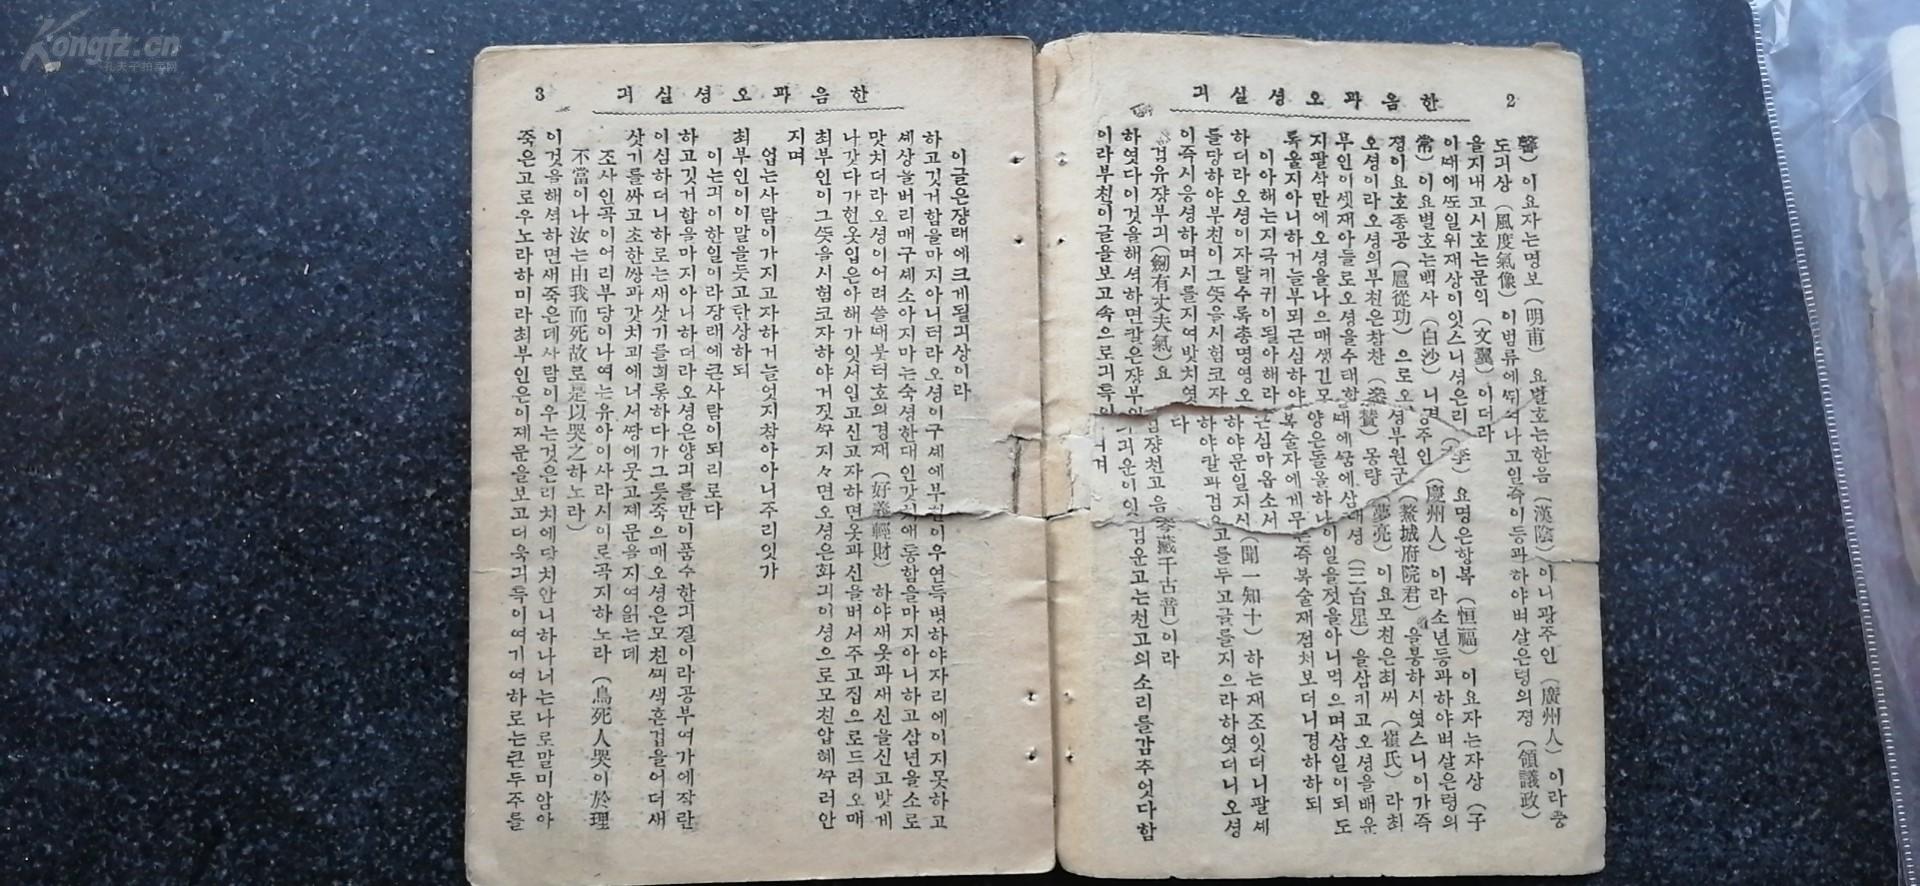 2
한음과오셩실긔
聲）이요자는명보（明甫）요별호는한음（漢陰）이니광주인（廣州人）이라풍
도긔상（風度氣像）이범류에 나고일즉이등과하야벼살은령의졍（領議政）
을지내고시호는문의（文翼）이더라
이때에또일위재상이잇스니셩은리（李）요명은항복（恒福）이요자는자상（子
常）이요별호는백사（白沙）니경주인（慶州人）이라소년등과하야벼살은령의
졍이요호종공（扈從功）으로오셩부원군（鰲城府院君）을봉하시엿스니이가즉
오셩이라오셩의부친은참찬（參贊）몽량（夢亮）이요모친은최씨（崔氏）라최
부인이셋재아들로오셩을수태할때에꿈에삼태셩（三台星）을삼키고오셩을배운
지팔삭만에오셩을나으매생긴모양은돌을하나이일을젓을아니먹으며삼일이되도
록울지아니하거늘부뫼근심하야복술자에게무른즉복술재졈처보더니경하하되
이아해는지극키귀이될아해라근심마옵소서
하더라오셩이자랄수록총명영오（聞一知十）하는재조잇더니팔셰
를당하야부친이그뜻을시험코자하야문일지시 하야칼과검은고를두고글를지으라하엿더니오셩
이즉시응셩하며시를지여밧치엿다
검유쟝부긔（劒有丈夫氣）요 금쟝천고음 藏千古音）이라
하엿다이것을해셕하면칼은쟝부의긔운이잇 검운고는천고의소리를감추엇다함
이라부친이글을보고속으로긔특이 겨
3
한음과오셩실긔
이글은쟝래에크게될긔상이라
하고깃거함을마지아니터라오셩이구셰에부친이우연득병하야자리에이지못하고
셰상늘버리매구셰소아지마는숙셩한대인갓치애통함을마지아니하고삼년을소로
맛치더라오셩이어려쓸때붓터호의경재（好義輕財）하야새옷과새신을신고밧게
나갓다가헌옷입은아해가잇서입고신고자하면옷과신을버서주고집으로드러오매
최부인이그뜻을시험코자하야거짓꾸지々면오셩은화긔이셩으로모친압헤꾸러안
지며
업는사람이가지고자하거늘엇지참아아니주리잇가
최부인이이말을듯고탄상하되
이는긔이한일이라장래에큰사람이되리로다
하고깃거함을마지아니하더라오셩은양긔를만이품수한긔졀이라공부여가에작란
이심하더니하로는새삿기를희롱하다가그릇죽으매오셩은모친씨색흔겁을어더새
삿기를싸고초한쌍과갓치괴에너서땅에뭇고졔문을지여읽는데
조사인곡이어리부당이나여는유아이사라시이로곡지하노라（鳥死人哭이於理
不當이나汝는由我而死故로是以哭之하노라）
이것을해셕하면새죽은데사람이우는것은리치에당치안니하나너는나로말미암아
죽은고로우노라하미라최부인은이졔문을보고더욱긔특이여기여하로는큰두주를
Kongfz.cn
孔夫子拍卖网